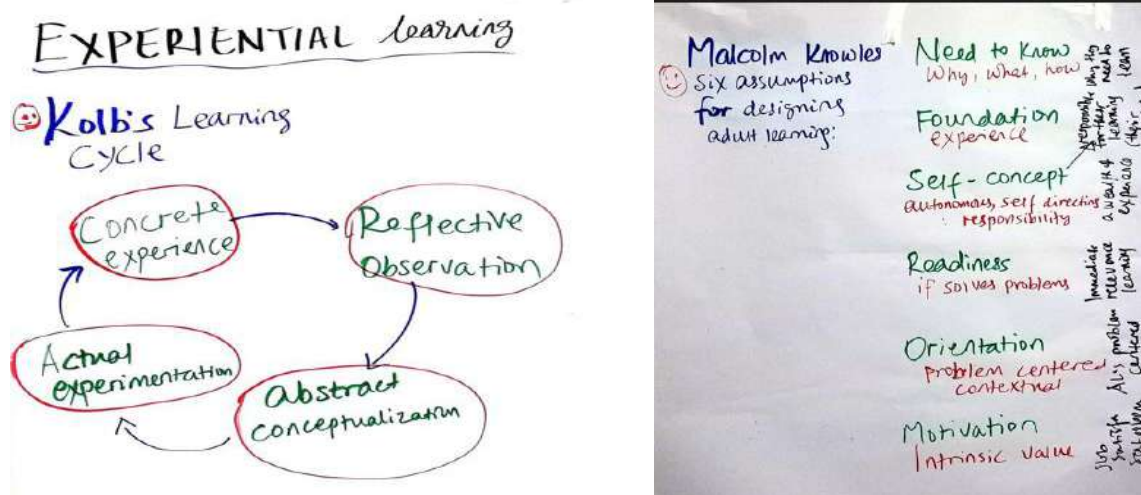 EXPERIENTIAL learning
Kolb's Learning
Cycle
Concrete
experience
Reflective
Observation
Actual
experimentation
Abstract
conceptualization
Malcolm Knowles
Six assumptions
for designing
adult learning:
Need to Know
Why, what, how
Foundation
experience
Self-concept
autonomous, self directing
: responsibility
Readiness
if solves problems
Orientation
problem centered
contextual
Motivation
Intrinsic value
why they
need to
learn
responsible
for their
learning
(their
a wealth of
experience
Immediate
relevance
learning
problem
centered
Job